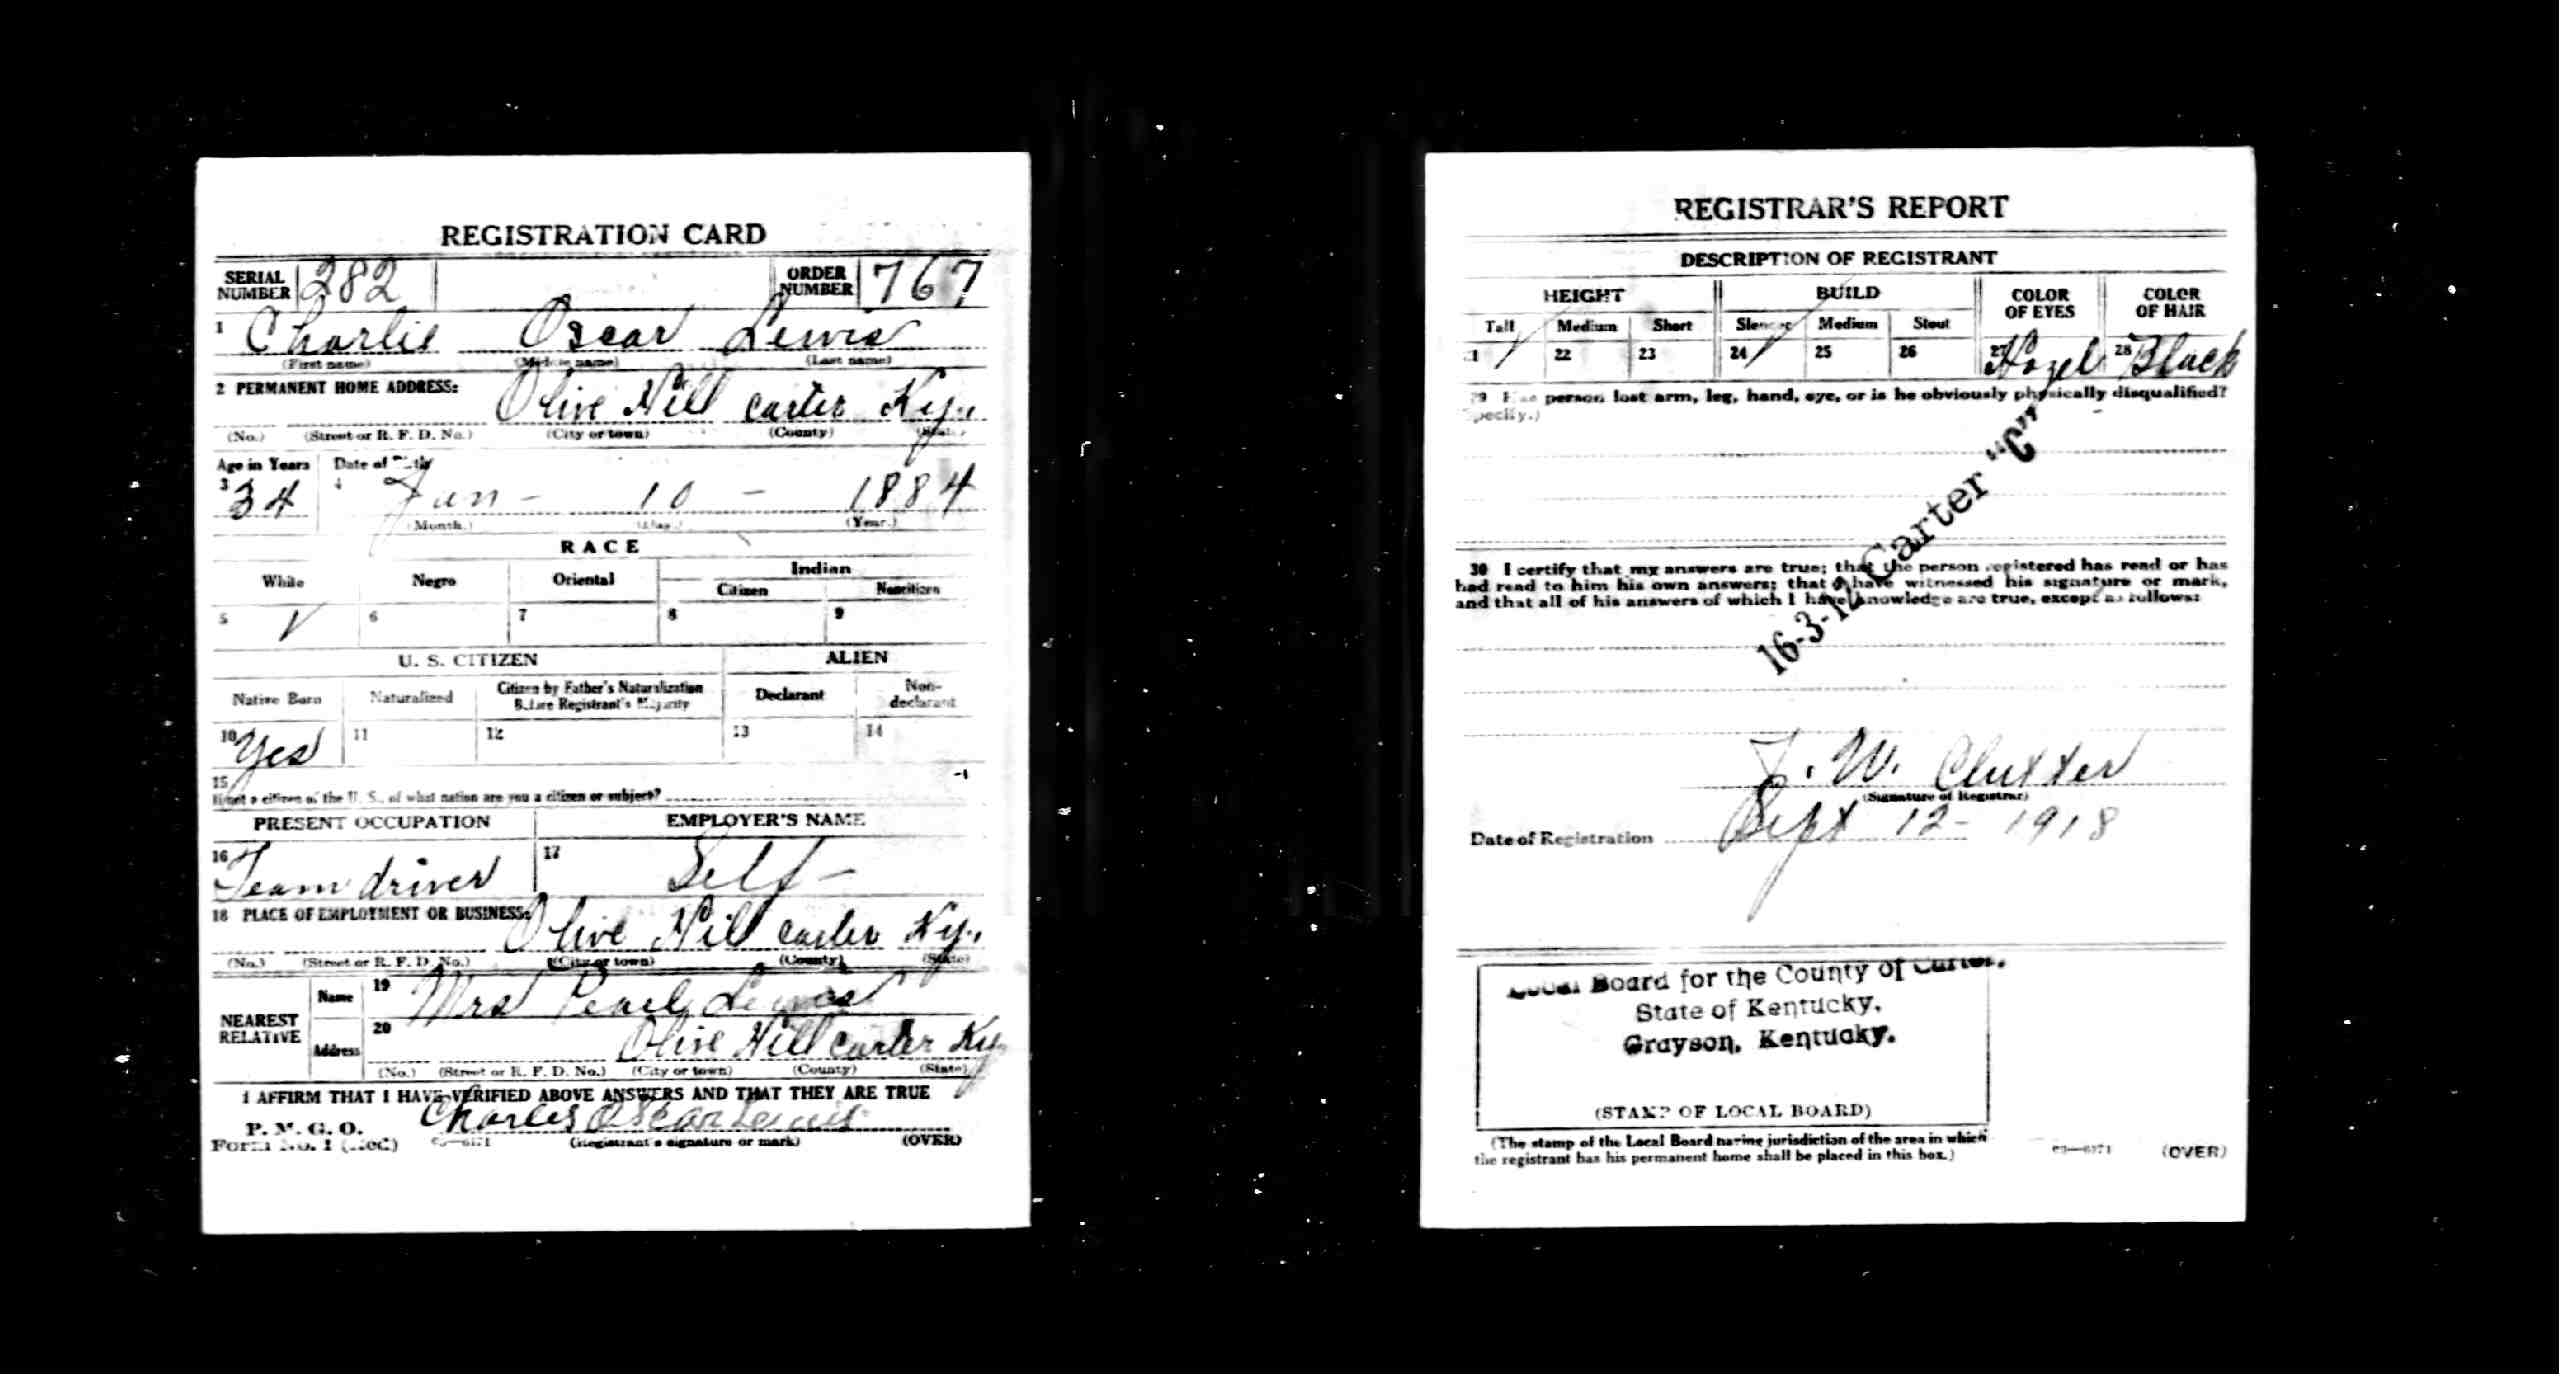 REGISTRATION CARD
SERIAL NUMBER 282 ORDER NUMBER 767
1 Charlie Oscar Lewis
(First name) (Middle name) (Last name)
2 PERMANENT HOME ADDRESS:
Olive Hill Carter Ky.
(No.) (Street or R. F. D. No.) (City or town) (County) (State)
Age in Years Date of Birth
3 34 4 Jan - 10 - 1884
(Month.) (Day.) (Year.)
RACE
White Negro Oriental Indian
Citizen Noncitizen
5 ✓ 6 7 8 9
U. S. CITIZEN ALIEN
Native Born Naturalized Citizen by Father's Naturalization Before Registrant's Majority Declarant Non-declarant
10 Yes 11 12 13 14
15
If not a citizen of the U. S., of what nation are you a citizen or subject?
PRESENT OCCUPATION EMPLOYER'S NAME
16 Team driver 17 Self -
18 PLACE OF EMPLOYMENT OR BUSINESS:
Olive Hill Carter Ky.
(No.) (Street or R. F. D. No.) (City or town) (County) (State)
NEAREST RELATIVE
Name 19 Mrs Pearl Lewis
Address 20 Olive Hill Carter Ky
(No.) (Street or R. F. D. No.) (City or town) (County) (State)
I AFFIRM THAT I HAVE VERIFIED ABOVE ANSWERS AND THAT THEY ARE TRUE
P. M. G. O.
Form No. 1 (Red) Charles Oscar Lewis
(Registrant's signature or mark) (OVER)
REGISTRAR'S REPORT
DESCRIPTION OF REGISTRANT
HEIGHT BUILD COLOR OF EYES COLOR OF HAIR
Tall Medium Short Slender Medium Stout
21 ✓ 22 23 24 ✓ 25 26 27 Hazel 28 Black
29 Has person lost arm, leg, hand, eye, or is he obviously physically disqualified?
(Specify.)
16-3-12 Carter "C"
30 I certify that my answers are true; that the person registered has read or has
had read to him his own answers; that I have witnessed his signature or mark,
and that all of his answers of which I have knowledge are true, except as follows:
J. W. Clutter
(Signature of Registrar)
Date of Registration Sept 12- 1918
Local Board for the County of Carter,
State of Kentucky,
Grayson, Kentucky.
(STAMP OF LOCAL BOARD)
(The stamp of the Local Board having jurisdiction of the area in which
the registrant has his permanent home shall be placed in this box.)
(OVER)